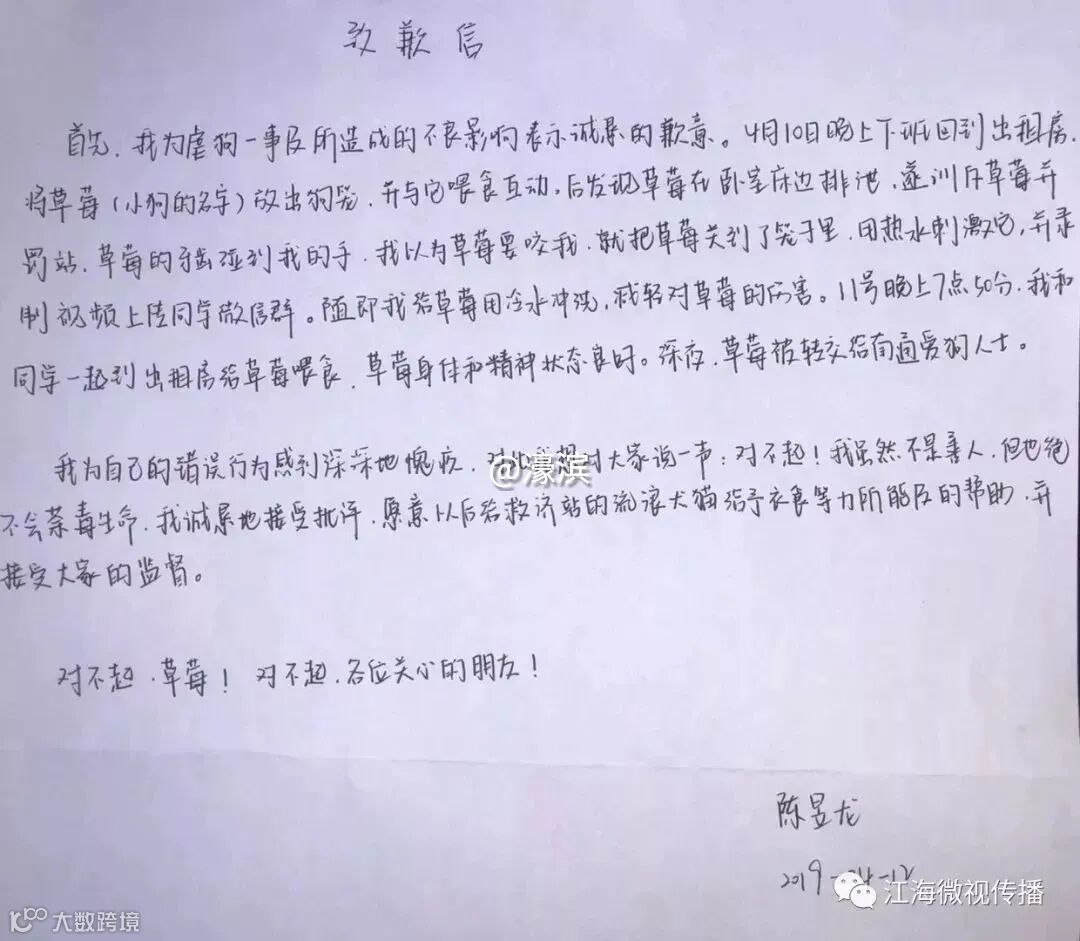 致歉信
首先,我为虐狗一事及所造成的不良影响表示诚恳的歉意。4月10日晚上下班回到出租房,
将草莓(小狗的名字)放出狗笼,并与它喂食互动,后发现草莓在卧室床边排泄,遂训斥草莓并
罚站,草莓的牙齿碰到我的手,我以为草莓要咬我,就把草莓关到了笼子里,用热水刺激它,并录
制视频上传同学微信群。随即我给草莓用冷水冲洗,减轻对草莓的伤害。11号晚上7点50分,我和
同学一起到出租房给草莓喂食,草莓身体和精神状态良好。深夜,草莓被转交给南通爱狗人士。
我为自己的错误行为感到深深地愧疚,对此我想对大家说一声:对不起!我虽然不是善人,但也绝
不会荼毒生命,我诚恳地接受批评,愿意以后给救济站的流浪犬猫给予衣食等力所能及的帮助,并
接受大家的监督。
对不起,草莓!对不起,各位关心的朋友!
陈昱龙
2019-04-12
@濠滨
江海微视传播
100 大数跨境